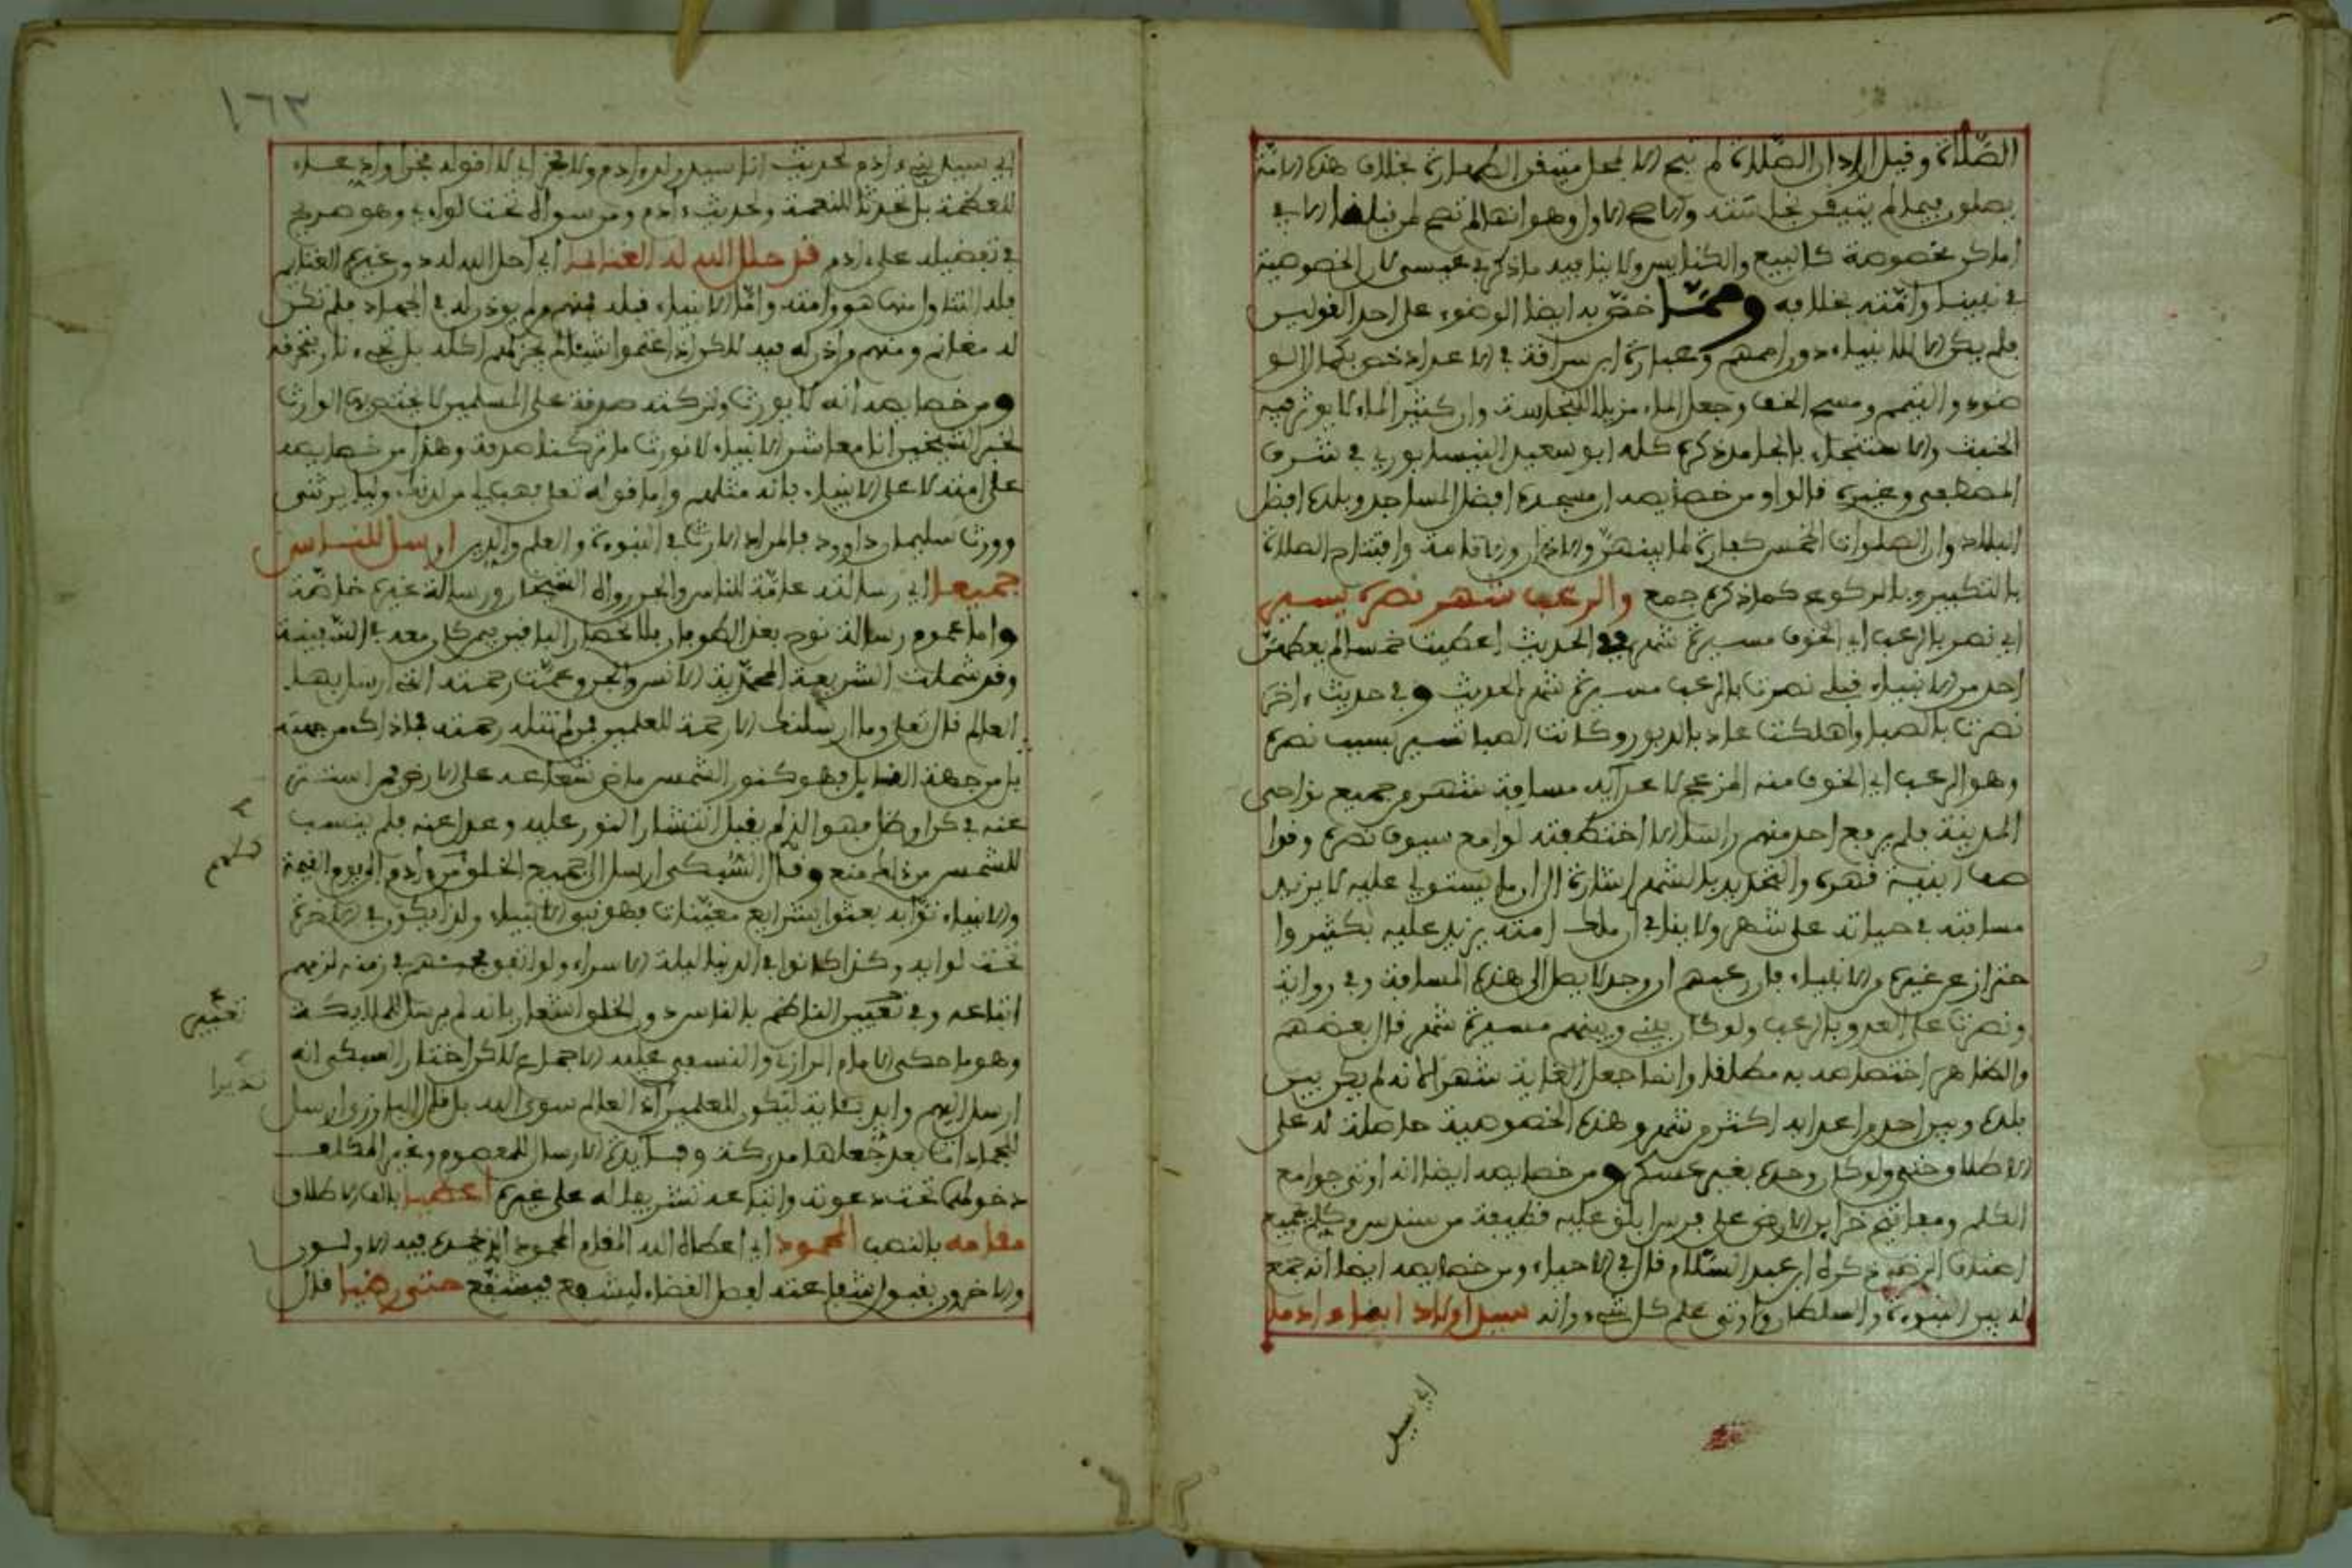 الصلاة وقيل أراد أن الصلاة لم تبح إلا بمحل متيقن الطهارة بخلاف هذه الأمة
يصلون فيما لم يتيقن نجاسته والأصح الأول وهو أنها لم تصح لمن قبلها إلا في
أماكن مخصوصة كالبيع والكنايس ولا ينافيه ما ذكر في عيسى لأن الخصوصية
في نبينا وأمته بخلافه ومما خص به أيضا الوضوء على أحد القولين
فلم يكن إلا للأنبياء دون أممهم وعبارة ابن سراقة في الأعداد خص بكمال الو
ضوء والتيمم ومسح الخف وجعل الماء مزيلا للنجاسة وأن كثير الماء لا يؤثر فيه
الخبث والاستنجاء بالجامد ذكره كله أبو سعيد النيسابوري في شرف
المصطفى وغيره قالوا ومن خصايصه أن مسجده أفضل المساجد وبلده أفضل
البلاد وأن الصلوات الخمس كفارة لما بينهن والأذان والإقامة وافتتاح الصلاة
بالتكبير وبالركوع كما ذكره جمع والرعب شهر نصره يسير
أي نصر بالرعب أي الخوف مسيرة شهر ففي الحديث أعطيت خمسا لم يعطهن
أحد من الأنبياء قبلي نصرت بالرعب مسيرة شهر الحديث وفي حديث ءاخر
نصرت بالصبا وأهلكت عاد بالدبور وكانت الصبا تسير بسبب نصره
وهو الرعب أي الخوف منه المزعج لأعدايه مسافة شهر من جميع نواحي
المدينة فلم يرفع أحد منهم راسا إلا اختطفته لوامع سيوف نصره وقوا
صف قهره والتحديد بالشهر إشارة إلى أن ما يستولي عليه لا يزيد
مسافته في حياته على شهر ولا ينافي أن ملك أمته يزيد عليه بكثير وا
حترز عن غيره من الأنبياء فإن رعبهم إن وجد لا يصل إلى هذه المسافة وفي رواية
ونصرت على العدو بالرعب ولو كان بيني وبينهم مسيرة شهر قال بعضهم
والظاهر اختصاصه به مطلقا وإنما جعل الغاية شهرا لأنه لم يكن بين
بلده وبين أحد من أعدايه أكثر من شهر وهذه الخصوصية حاصلة له على
الإطلاق حتى ولو كان وحده بغير عسكر ومن خصايصه أيضا أنه أوتي جوامع
الكلم ومفاتيح خزاين الأرض على فرس أبلق عليه قطيفة من سندس وكلم بجميع
أصناف الوحي ذكره ابن عبد السلام قال في الأحياء ومن خصايصه أيضا أنه جمع
له بين النبوة والسلطان وأوتي علم كل شيء وأنه سيد أولاد أيضا ءادما
أي سيد
١٦٣
أي سيد بني ءادم لحديث أنا سيد ولد ءادم ولا فخر أي لا أقوله فخرا وادعاء
للعظمة بل تحدثا للنعمة ولحديث ءادم ومن سواه تحت لوايي وهو صريح
في تفضيله على ءادم قد حلل الله له الغنائما أي أحل الله له دون غيره الغنايم
فله التناول منها هو وأمته وأما الأنبياء قبله فمنهم من لم يوذن له في الجهاد فلم تكن
له مغانم ومنهم من أذن له فيه لكن إذا غنموا شيئا لم يحز لهم أكله بل تجيء نار فتحرقه
ومن خصايصه أنه لا يورث وتركته صدقة على المسلمين لا يختص بها الوارث
لخبر الشيخين إنا معاشر الأنبياء لا نورث ما تركناه صدقة وهذا من خصايصه
على أمته لا على الأنبياء فإنه مثلهم وأما قوله تعالى فهب لي من لدنك وليا يرثني
وورث سليمان داوود فالمراد الإرث في النبوة والعلم والدين أرسل للناس
جميعا أي رسالته عامة للناس والجن رواه الشيخان ورسالة غيره خاصة
وأما عموم رسالة نوح بعد الطوفان فلانحصار الباقين فيمن كان معه في السفينة
وقد شملت الشريعة المحمدية الإنس والجن وعمت رحمته التي أرسل بها
العالم قال تعالى وما أرسلناك إلا رحمة للعلمين فمن لم تنله رحمته فما ذاك من جهته
بل من جهة القابل فهو كنور الشمس فاض شعاعه على الأرض فمن استتر
عنه في كن أو ظل فهو الذي لم يقبل انتشار النور عليه وعدل عنه فلم ينسب
للشمس من ذلك منع وقال السبكي أرسل إلى جميع الخلق من ءادم إلى يوم القيمة
والأنبياء نواب له بعثوا بشرايع معينات فهو نبي الأنبياء ولذا يكون في الآخرة
تحت لوايه وكذا كانوا في الدنيا ليلة الإسراء ولو اتفق مجيئهم في زمنه لزمهم
اتباعه وفي تعبير الناظم بالناس دون الخلق إشعار بأنه لم يرسل للملايكة
وهو ما حكى الإمام الرازي والنسفي عليه الإجماع لكن اختار السبكي أنه
أرسل إليهم وأيد بآية ليكون للعلمين أي العالم سوى الله بل قال البارزي أرسل
للجمادات بعد جعلها مدركة وفايدة الإرسال للمعصوم وغير المكلف
دخولهما تحت دعوته واتباعه تشريفا له على غيره أعطيا بألف الإطلاق
مقامه بالنصب المحمود أي أعطاه الله المقام المحمود الذي يحمده فيه الأولون
والآخرون بقبول شفاعته لفصل القضاء ليشفع فيشفع حتى رضيا قال
نذيرا